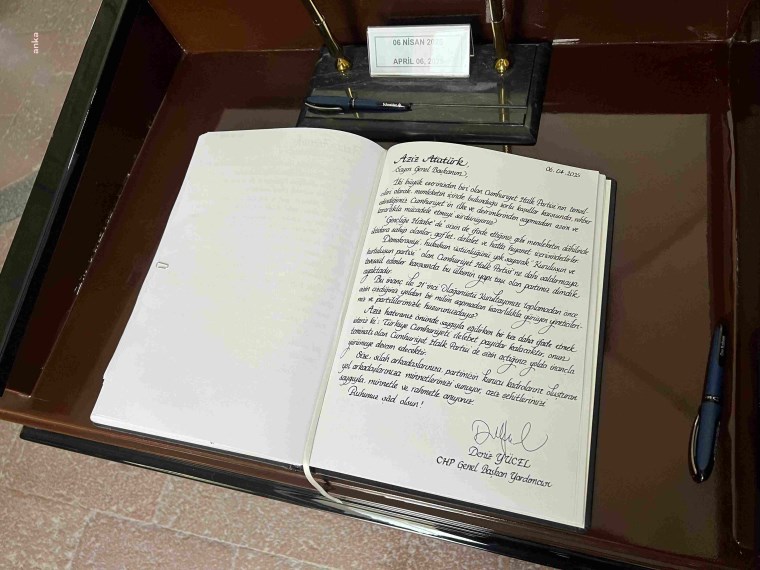 anka
06 NİSAN
APRIL 06,
Aziz Atatürk,
06.04.2025
Sayın Genel Başkanım,
İki büyük eserinizden biri olan Cumhuriyet Halk Partisi'nin temel
olarak, memleketin içinde bulunduğu zorlu koşullar karşısında, rehber
Cumhuriyet'in ilke ve devrimlerinden sapmadan azim ve
kararlılıkla mücadele etmeyi sürdürüyoruz.
"Gençliğe Hitabe"de sizin de ifade ettiğiniz gibi memleketin dahilinde
iktidara sahip olanlar, gaflet, dalalet ve hatta hıyanet içerisindedirler.
Demokrasiyi, hukukun üstünlüğünü yok sayarak "Kuruluşun ve
kurtuluşun partisi" olan Cumhuriyet Halk Partisi'ne dahi saldırmaya
edenler karşısında bu ülkenin yapı taşı olan partimiz dimdik
ayaktadır.
Bu inanç ile 21'inci Olağanüstü Kurultayımızı toplamadan önce
sizin çizdiğiniz yoldan bir milim sapmadan kararlılıkla yürüyen yöneticileri-
niz ve partililerinizle huzurunuzdayız.
Aziz hatıranız önünde saygıyla eğilirken bir kez daha ifade etmek
isteriz ki; Türkiye Cumhuriyeti ilelebet payidar kalacaktır, onun
teminatı olan Cumhuriyet Halk Partisi de sizin açtığınız yolda inançla
yürümeye devam edecektir.
Size, silah arkadaşlarınıza, partimizin kurucu kadrolarını oluşturan
yol arkadaşlarınıza minnetlerimizi sunuyor, aziz şehitlerimizi
saygıyla, minnetle ve rahmetle anıyoruz.
Ruhunuz şâd olsun!
Deniz YÜCEL
CHP Genel Başkan Yardımcısı